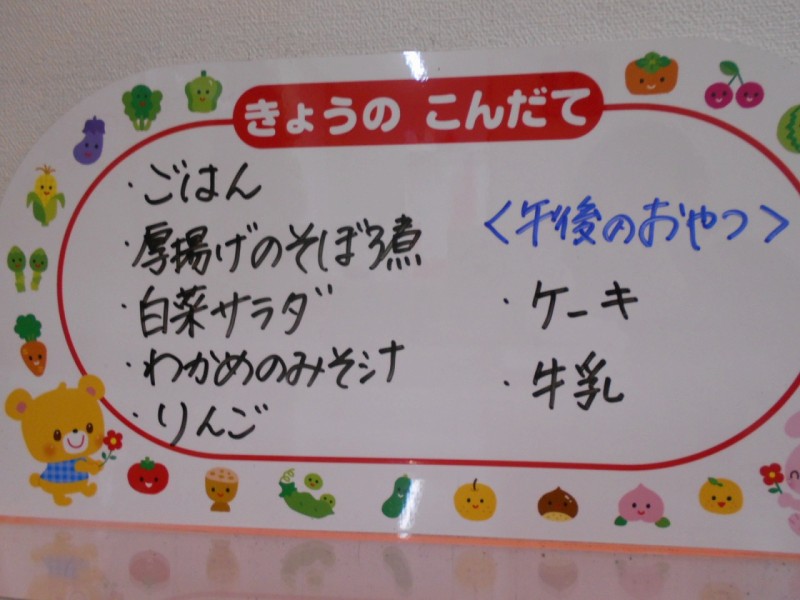 きょうの こんだて
・ごはん
・厚揚げのそぼろ煮
・白菜サラダ
・わかめのみそ汁
・りんご
<午後のおやつ>
・ケーキ
・牛乳